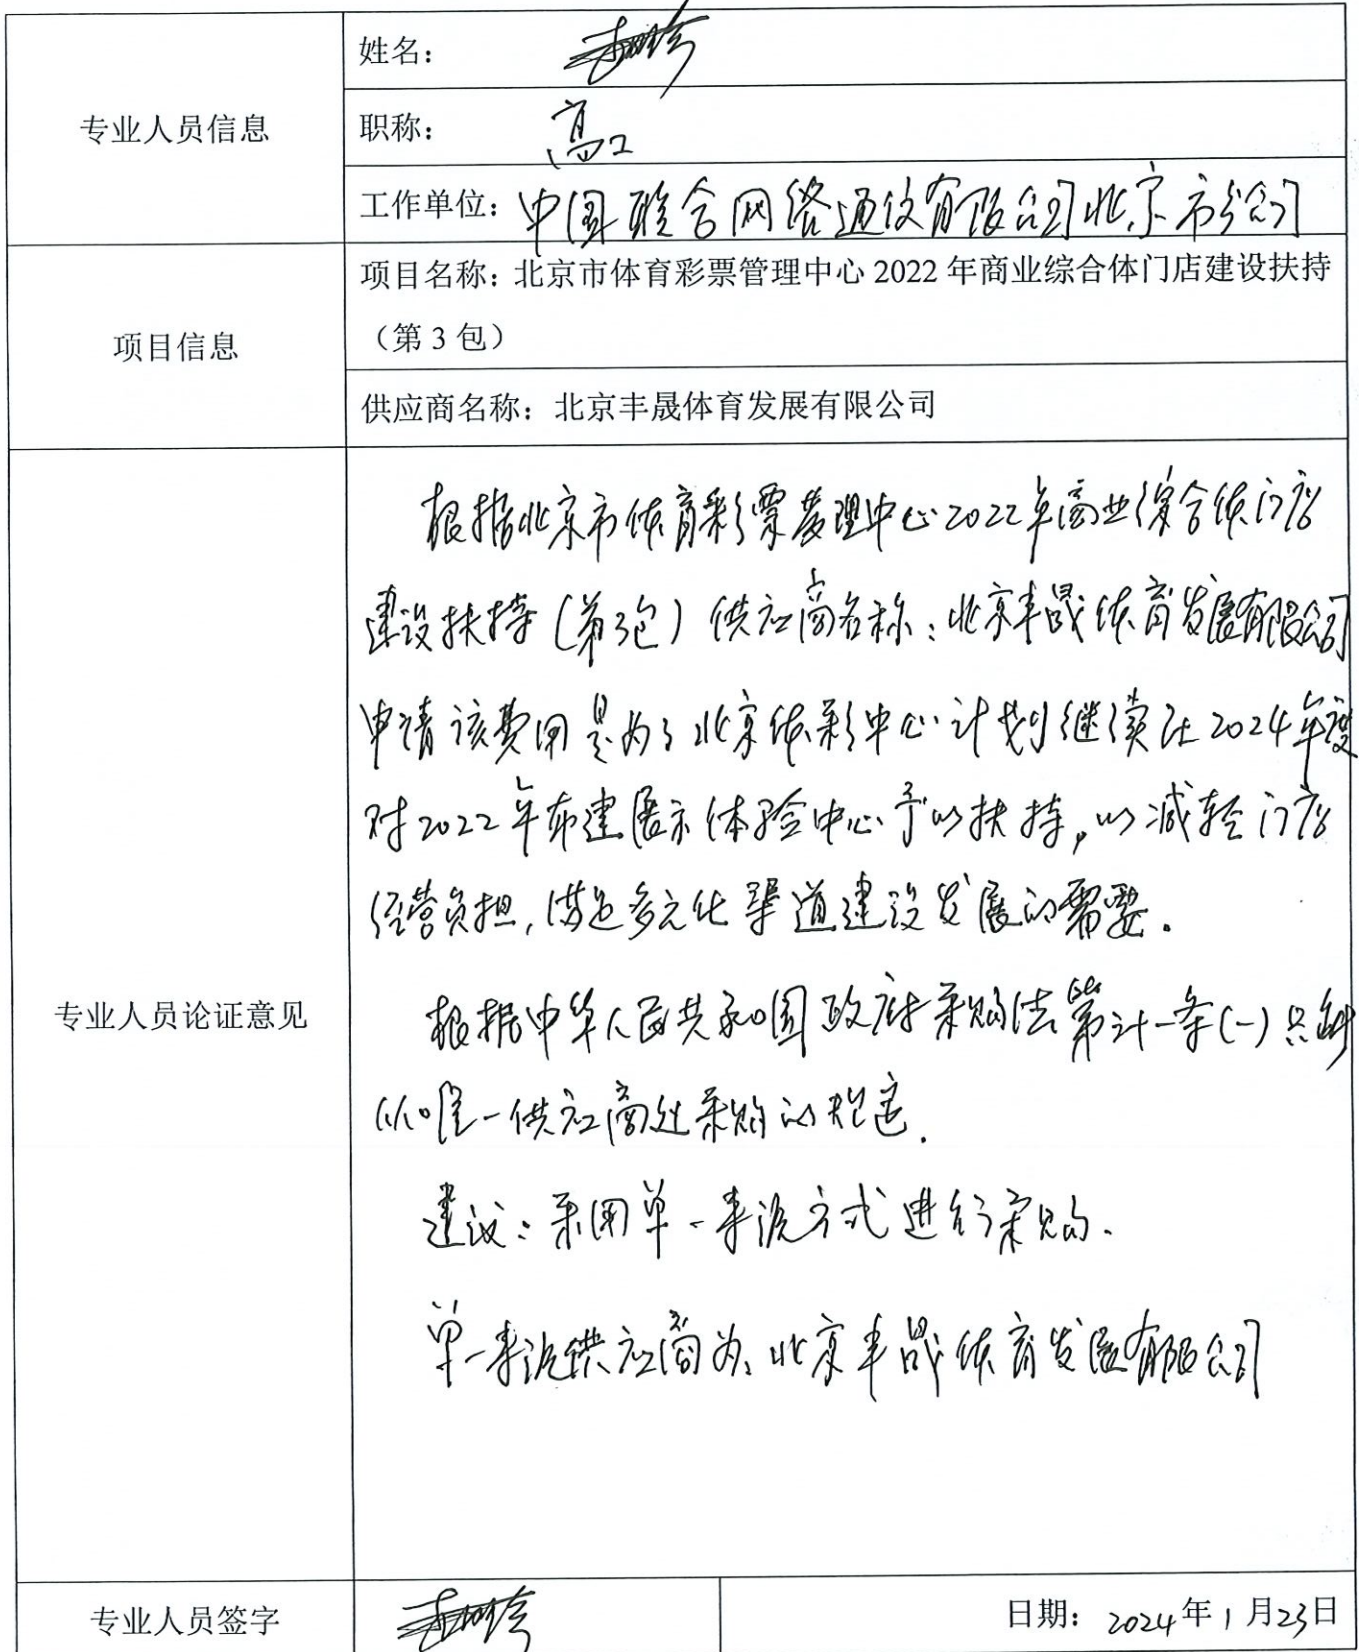 姓名：
专业人员信息
职称：高工
工作单位：中国联合网络通信有限公司北京市分公司
项目名称：北京市体育彩票管理中心 2022 年商业综合体门店建设扶持
项目信息
（第 3 包）
供应商名称：北京丰晟体育发展有限公司
根据北京市体育彩票管理中心2022年商业综合体门店
建设扶持（第3包）供应商名称：北京丰晟体育发展有限公司
申请该费用是为了北京体彩中心计划继续在2024年度
对2022年布建展示体验中心予以扶持，以减轻门店
经营负担，满足多元化渠道建设发展的需要。
专业人员论证意见
根据中华人民共和国政府采购法第三十一条(一)只能
从唯一供应商处采购的规定.
建议：采用单一来源方式进行采购.
单一来源供应商为：北京丰晟体育发展有限公司
专业人员签字
日期：2024年1月23日